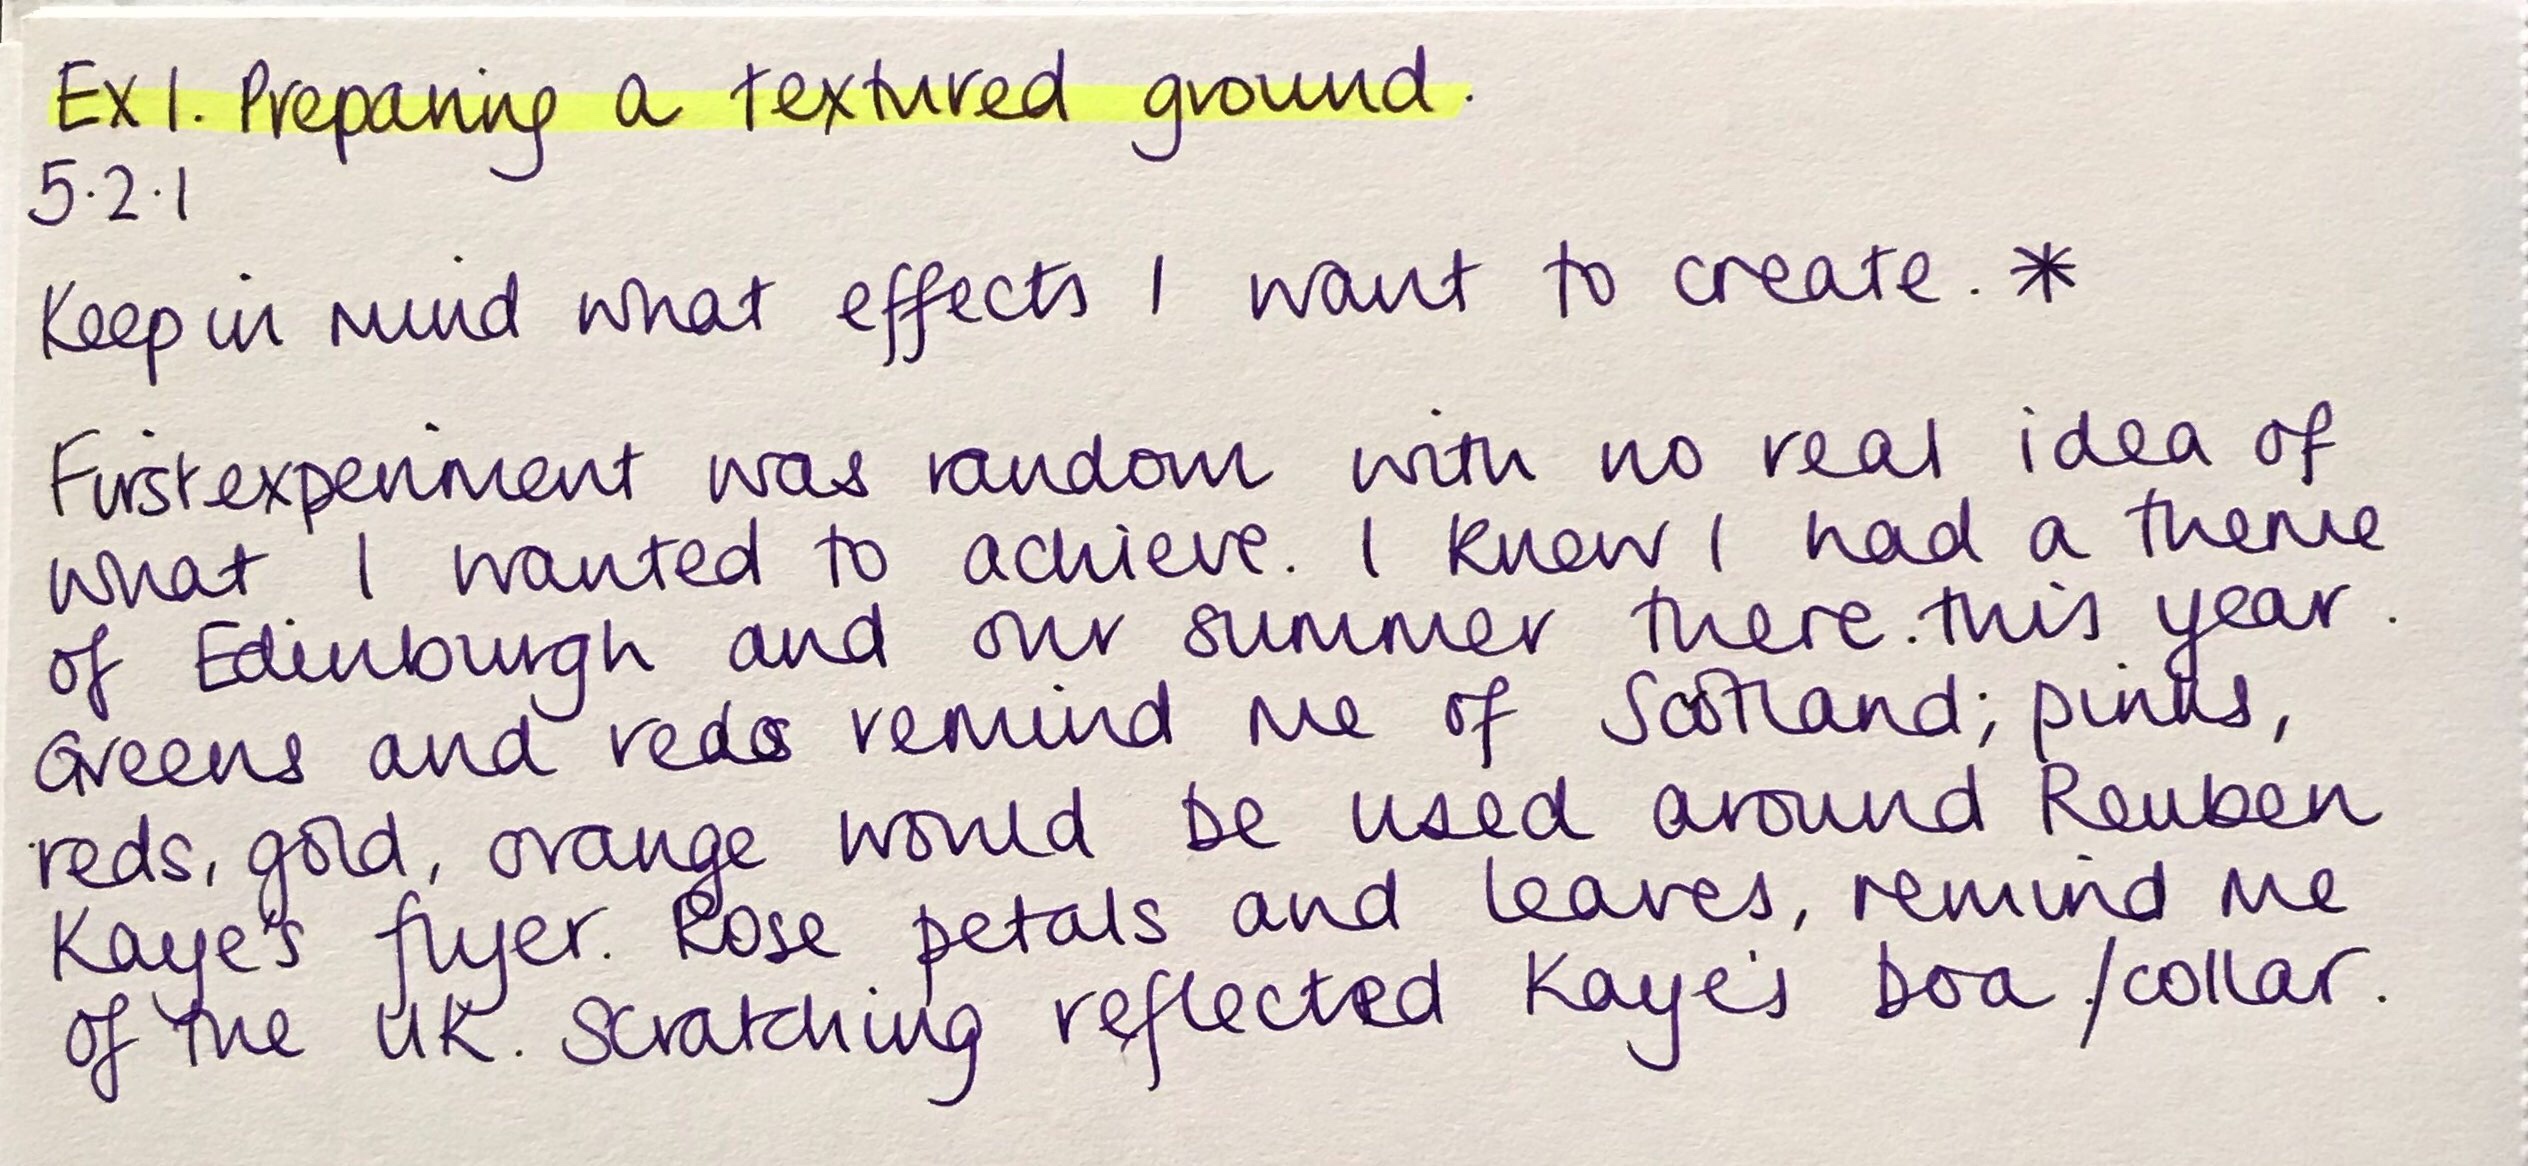 Ex 1. Preparing a textured ground.
5.2.1
Keep in mind what effects I want to create. *
First experiment was random with no real idea of
what I wanted to achieve. I knew I had a theme
of Edinburgh and our summer there. this year.
Greens and reds remind me of Scotland; pinks,
reds, gold, orange would be used around Reuben
Kaye's flyer. Rose petals and leaves, remind me
of the UK. Scratching reflected Kaye's boa /collar.